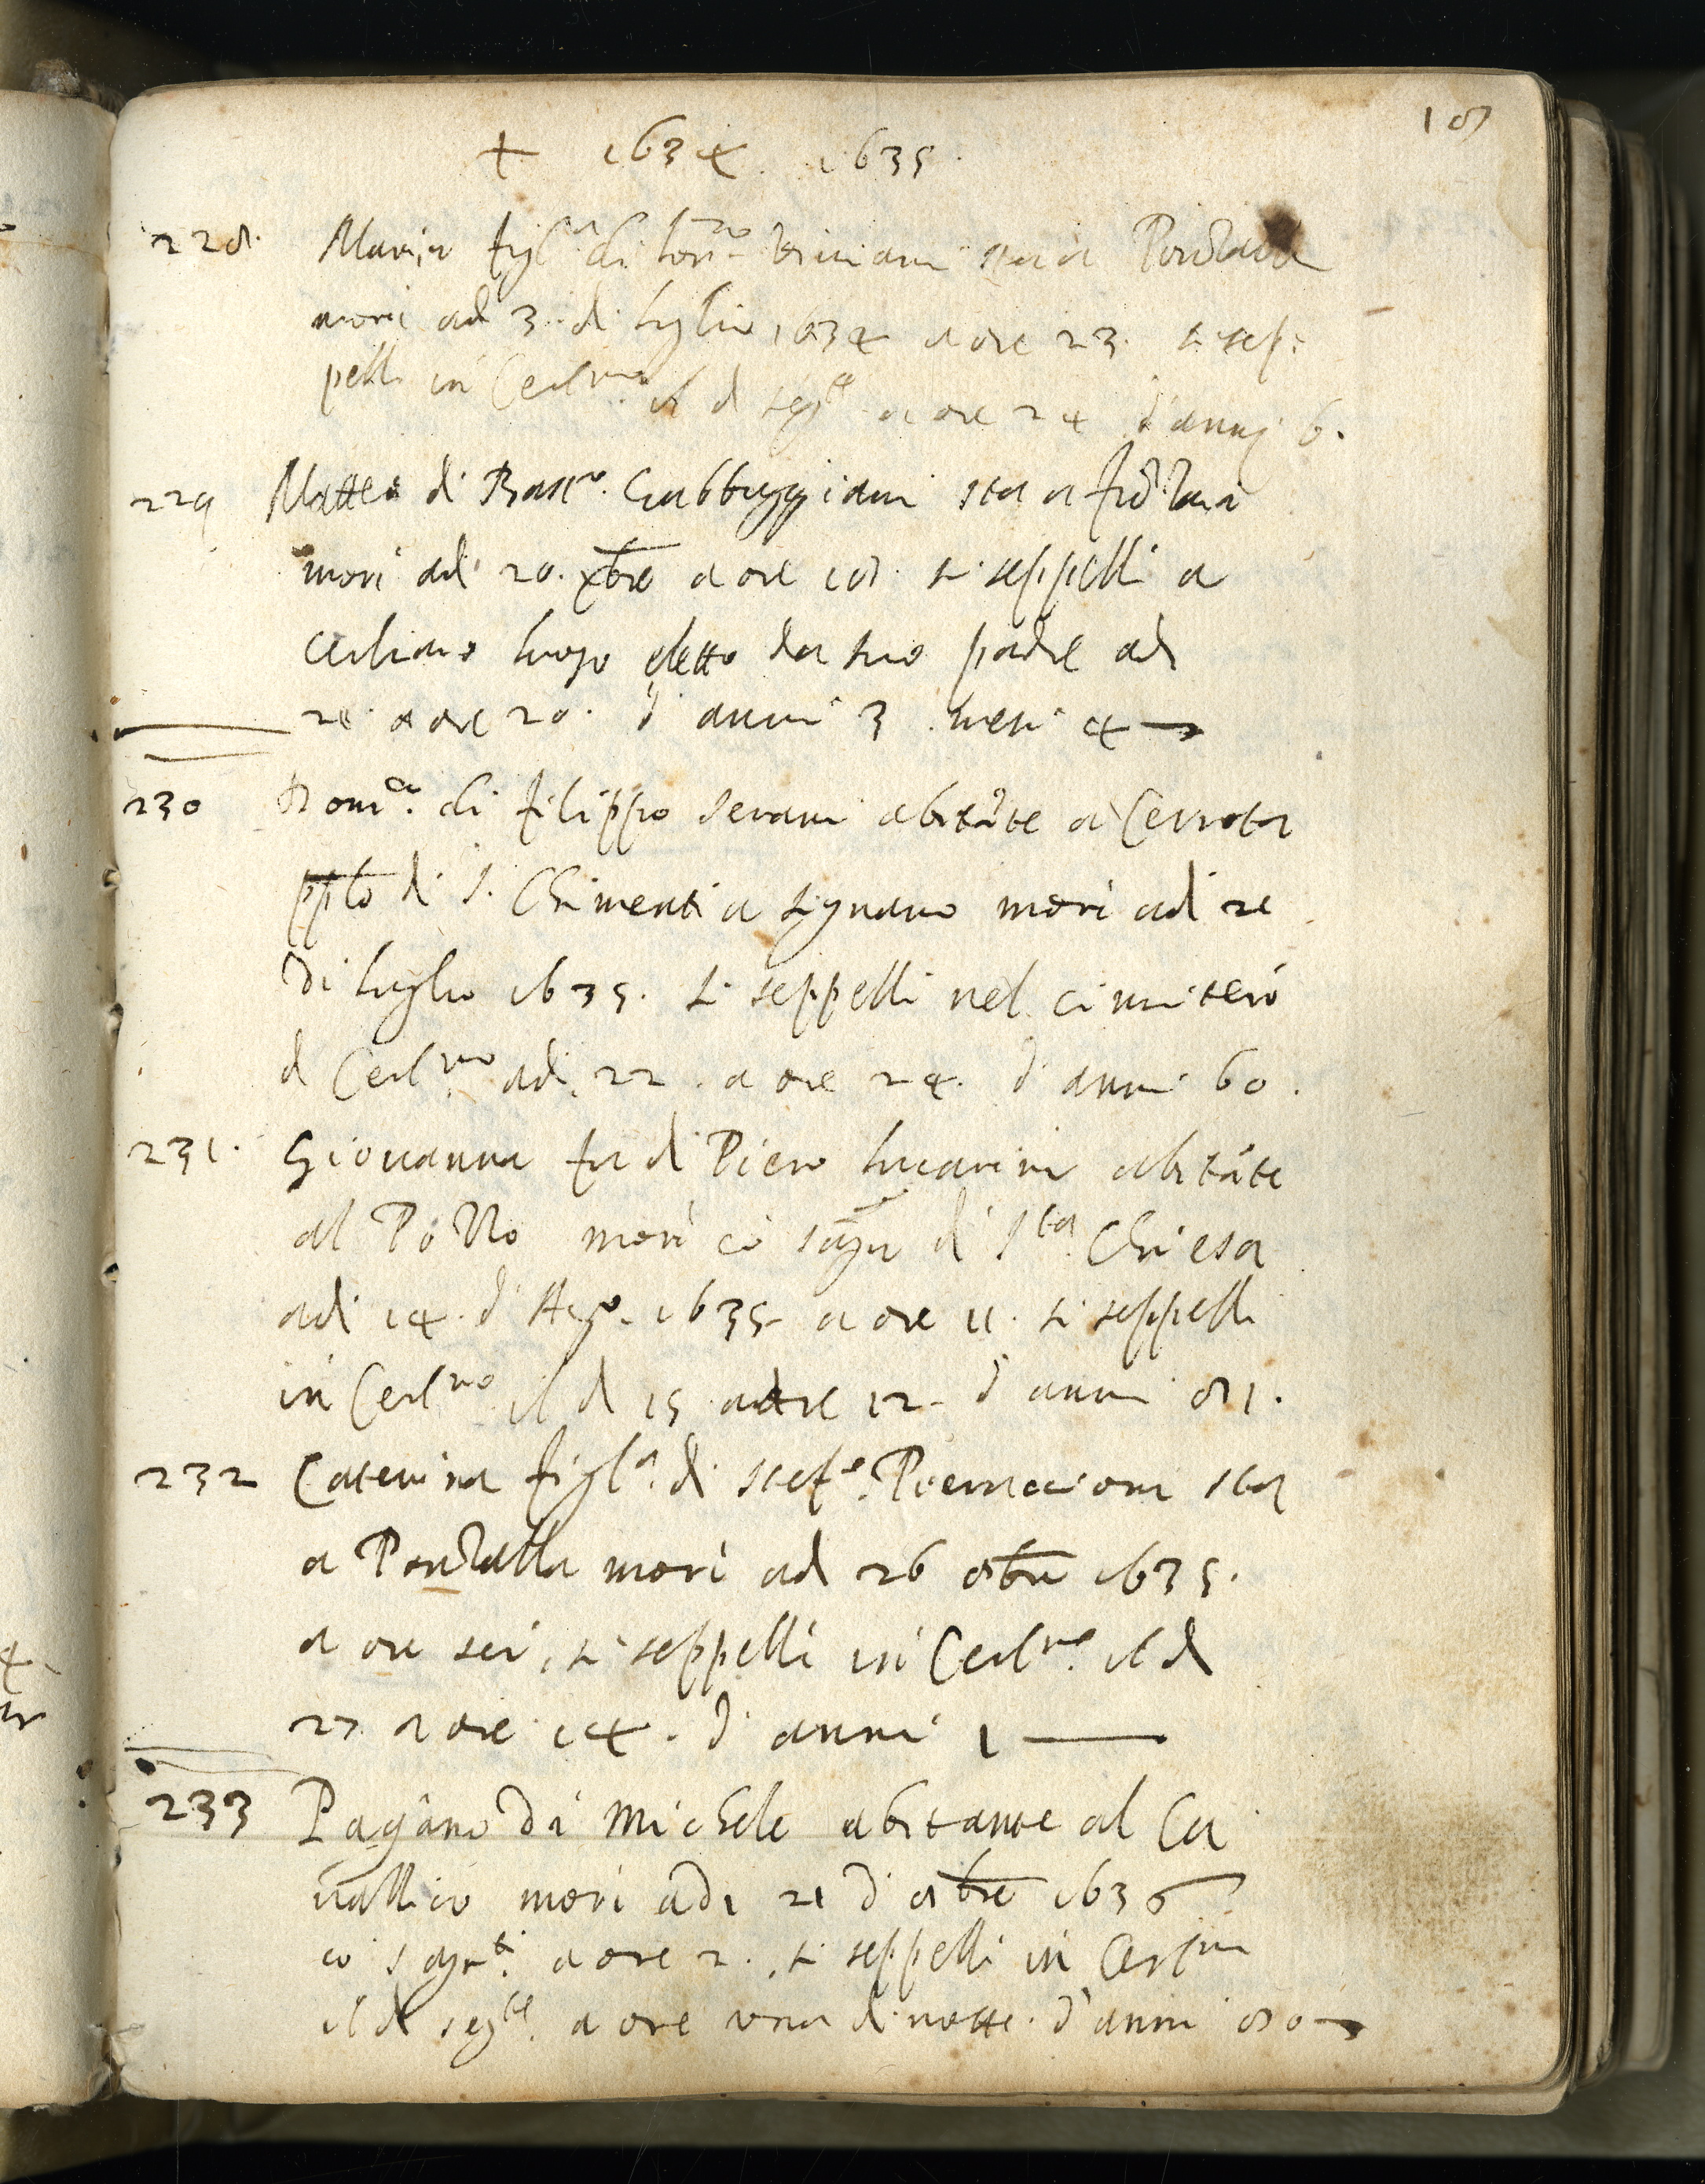 18
+ 1634. 1635.
228. Maria figl.a di Lor.zo sta a
morì ad 3. di luglio 1634 a ore 23. si sep:
pellì in Cerl.no il dì seg.te a ore 24 d'anni 6.
229 Matteo di Bast.o Gabbuggiani sta a
morì adì 20. xbre a ore 18. si seppellì a
cerliano luogo eletto da suo padre adì
21. a ore 20. d'anni 3 mesi 4
230 Dom.ca di filippo Serani abitāte a Cerreta
pplo di S. Chimenti a Signano morì adì 21
di luglio 1635. si seppellì nel cimiterio
di Cerl.no adì 22. a ore 24. d'anni 60.
231. Giovanna fu di Piero lucarini abitāte
al morì cō di S.ta Chiesa
adì 14. d'Ag.o 1635 a ore 11. si seppellì
in Cerl.no il dì 15 a ore 12. d'anni 81.
232 Caterina figl.a di Stef.o sta
a morì adì 26 8bre 1635.
a ore sei, si seppellì in Cerl.no il dì
27 a ore 14. d'anni 1
233 Pagano di Michele abitante al Ca
vallico morì adì 21 d'8bre 1636
cō Sagr.ti a ore 2. si seppellì in
il dì seg.te a ore una di notte. d'anni 80